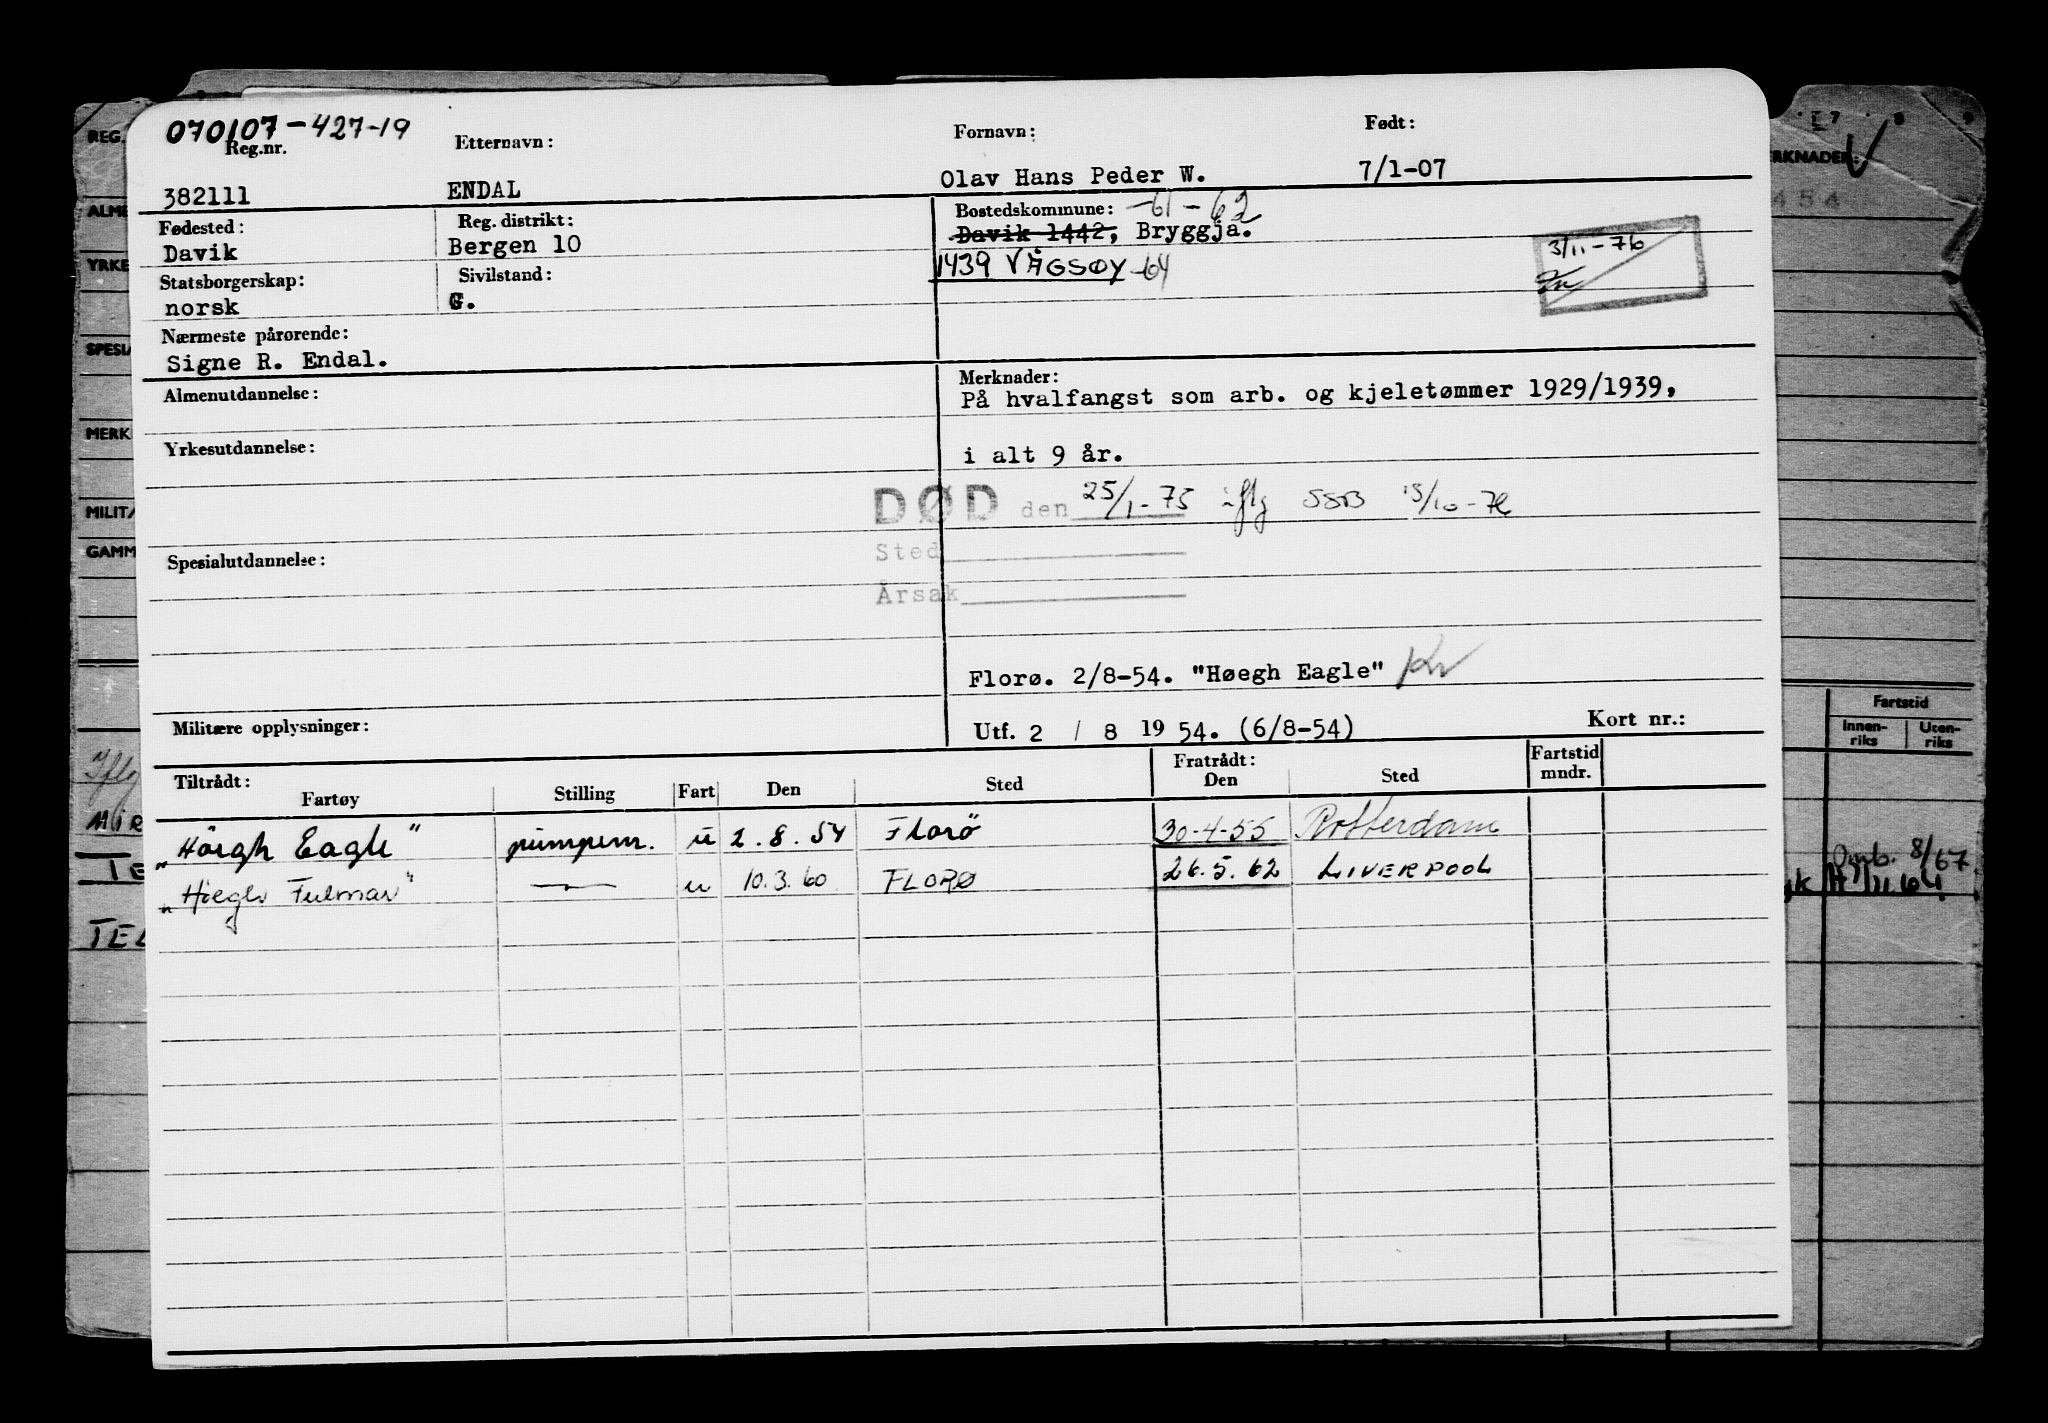 070107-427-19
Reg.nr. Etternavn: Fornavn: Født:
382111 ENDAL Olav Hans Peder W. 7/1-07
Fødested: Reg. distrikt: Bostedskommune: -61-62
Davik Bergen 10 Davik 1442, Bryggja.
3/11-76
Statsborgerskap: Sivilstand: 1439 VÅGSØY -64
norsk G.
Nærmeste pårørende:
Signe R. Endal.
Almenutdannelse: Merknader:
På hvalfangst som arb. og kjeletømmer 1929/1939,
Yrkesutdannelse:
i alt 9 år.
DØD den 25/1-75 iflg SSB 13/10-76
Sted
Spesialutdannelse:
Årsak
Florø. 2/8-54. "Høegh Eagle"
Militære opplysninger: Utf. 2 / 8 19 54. (6/8-54) Kort nr.:
Tiltrådt: Fratrådt: Fartstid
Fartøy Stilling Fart Den Sted Den Sted mndr.
"Høegh Eagle" pumpem. u 2.8.54 Florø 30-4-55 Rotterdam
"Høegh Fulmar" — u 10.3.60 FLORØ 26.5.62 LIVERPOOL
REG.
ALME
YRKE
SPESIA
MERK
MILITÆ
GAMM
Iflg
MIR
TE
TEL
7 8 9
RKNADER:
454
Fartstid
Innen-riks Uten-riks
Omb. 8/67